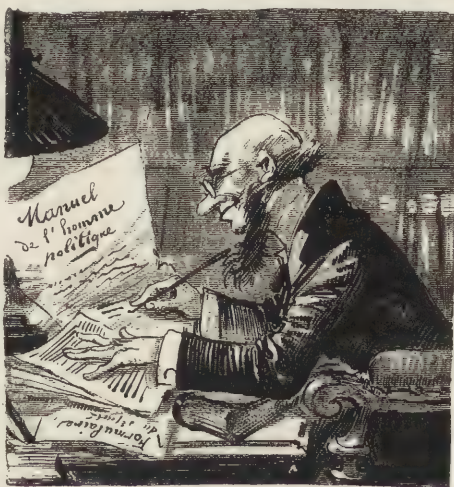 Manuel
de l'homme
politique
Formulaire